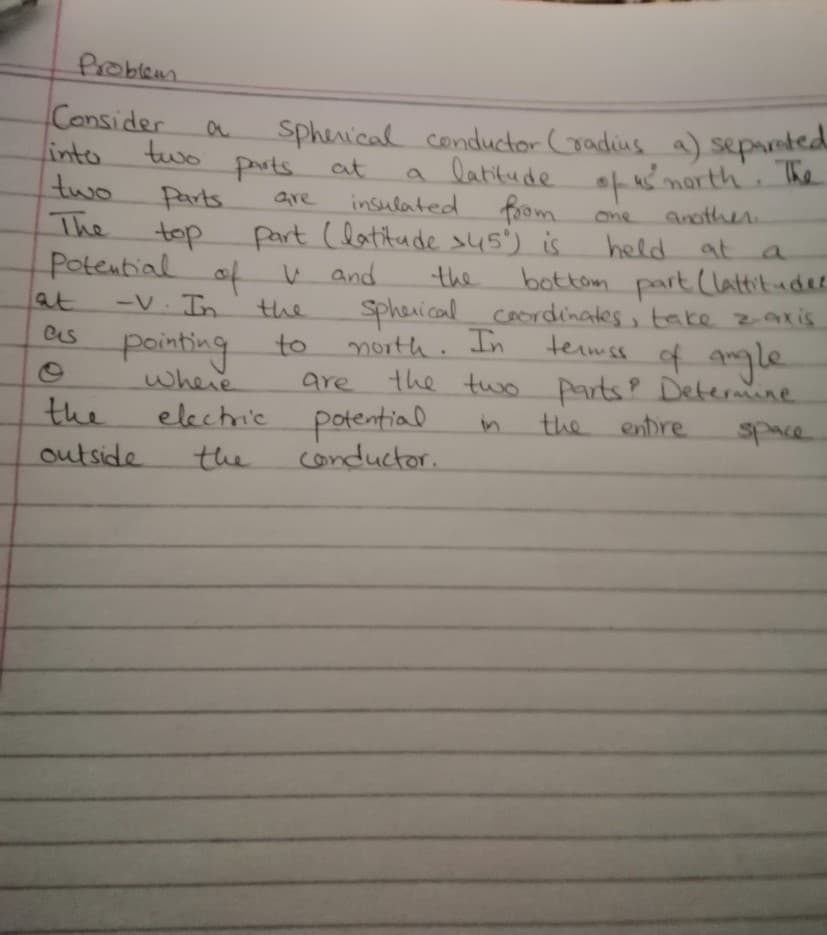 Problem
Consider a spherical conductor (radius a) separated
into two parts at a latitude of 45° north. The
two parts are insulated from one another.
The top part (latitude >45°) is held at a
potential of V and the bottom part (lattitudes
at -V. In the spherical coordinates, take z-axis
as pointing to north. In termss of angle
θ where are the two parts? Determine
the electric potential in the entire space
outside the conductor.